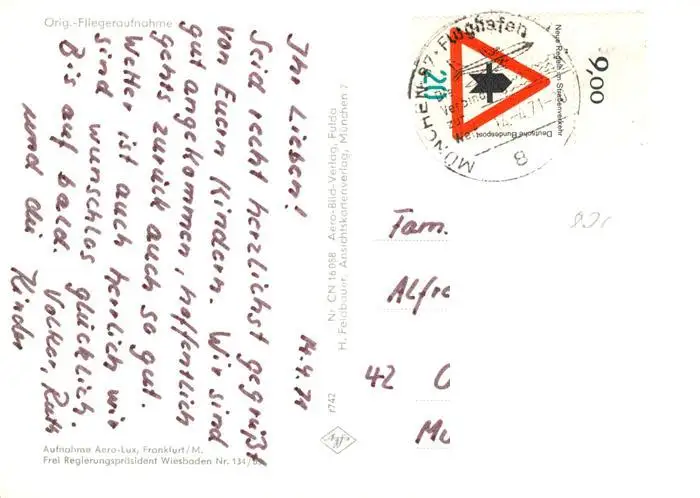 Orig.-Fliegeraufnahme
14.4.71
Ihr Lieben!
Seid recht herzlichst gegrüßt
von Euern Kindern. Wir sind
gut angekommen, hoffentlich
gehts zurück auch so gut.
Wetter ist auch herrlich wir
sind wunschlos glücklich.
Bis auf bald. Volker, Ruth
und die Kinder
Aufnahme Aero-Lux, Frankfurt/M.
Frei Regierungspräsident Wiesbaden Nr. 134/
r742
Nr. CN 16 058 Aero-Bild-Verlag, Fulda
H. Feldbauer, Ansichtskartenverlag, München 7
MÜNCHEN 87-Flughafen
8
20
Deutsche Bundespost
Neue Regeln im Straßenverkehr
9,00
Fam.
Alfre
42 O
Mü